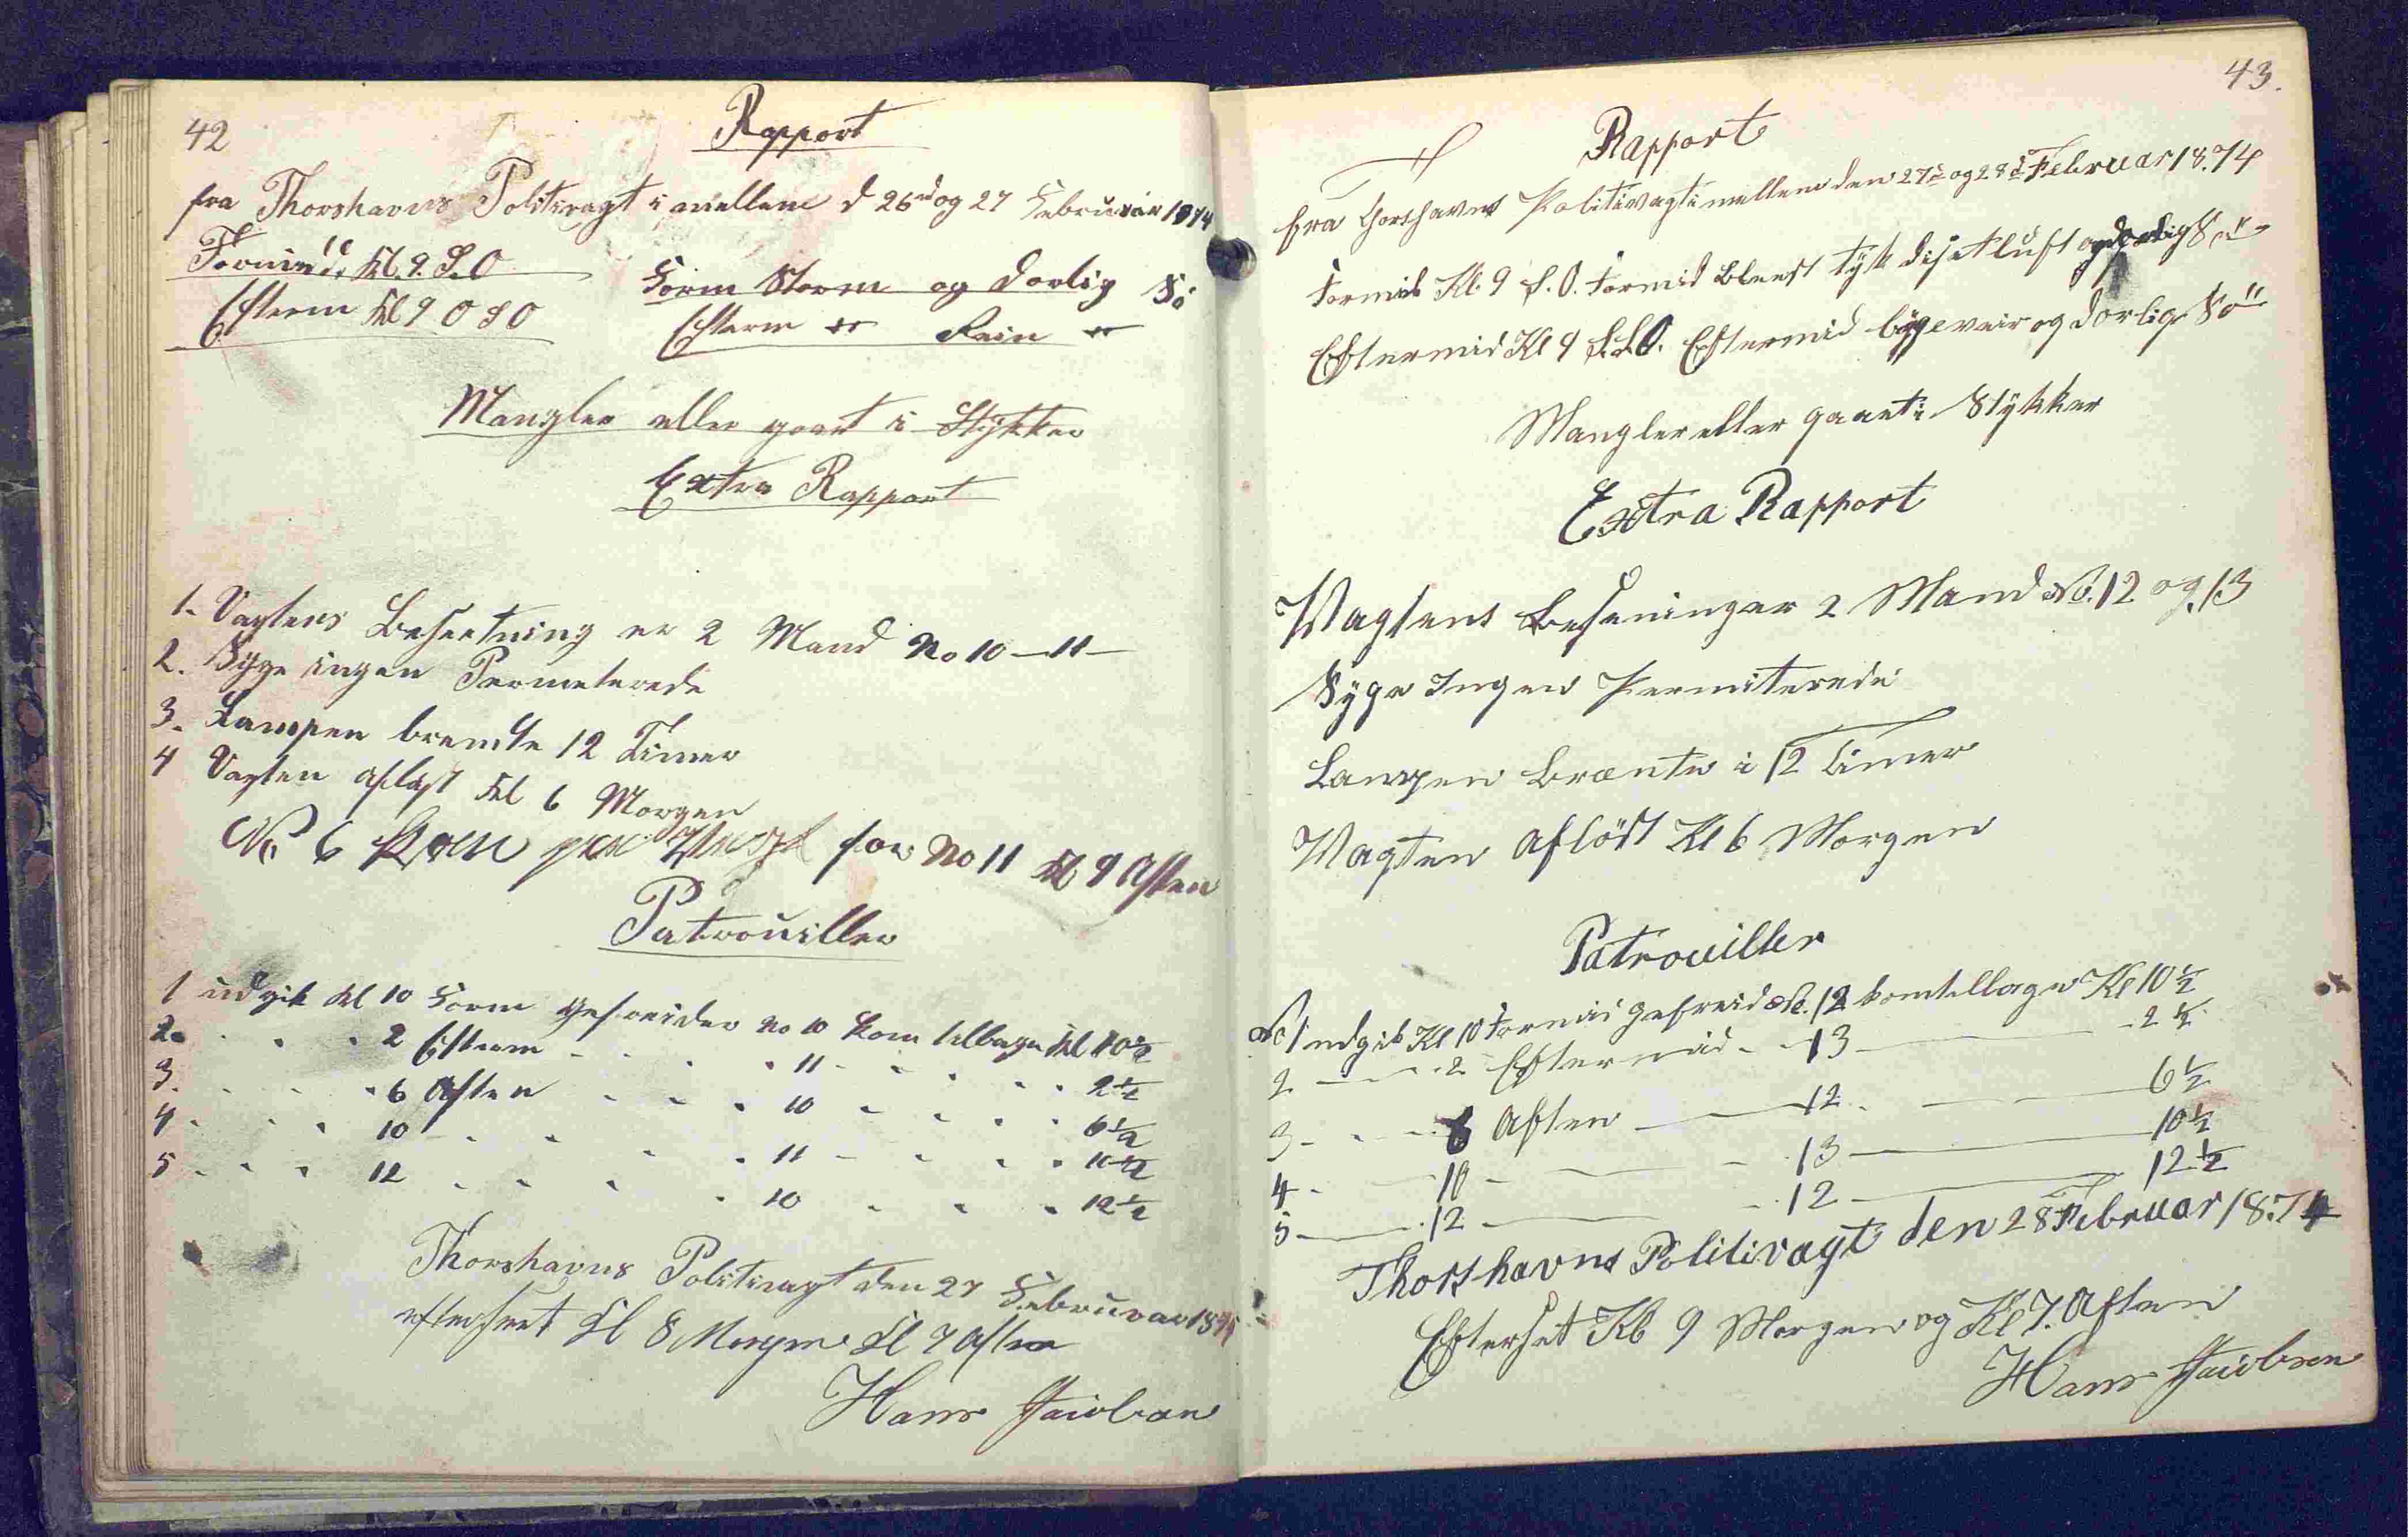 42
Rapport
fra Thorshavns Politivagt i mellem d 26 og 27 Februar 1874
Formid. Kl. 9. S. O Form Storm og dorlig Sö
Efterm Kl 9 O S O Efterm " Rein "
Mangler eller gaaet i Stykker
Extra Rapport
1. Vagtens Besætning er 2 Mand No 10 – 11 –
2. Syge ingen Permeterede
3. Lampen brendte 12 Timer
4 Vagten aflöst Kl 6 Morgen
No 6 kom paa Vagt for No 11 Kl 9 Aften
Patrouiller
1 udgik Kl 10 Form Gefreider No 10 kom tilbage Kl 10 1/2
2. . . . 2 Efterm . . . 11 . . . . 2 1/2
3. . . . 6 Aften . . . 10 . . . . 6 1/2
4 . . . 10 . . . . 11 . . . . 10 1/2
5 . . . 12 . . . . 10 . . . 12 1/2
Thorshavns Politivagt den 27 Februar 1874
efterseet Kl 8 Morgen Kl 7 Aften
Hans Jacobsen
43.
Rapport
fra Thorshavns Politivagt imellem den 27d og 28d Februar 18.74
Formid Kl. 9 S. O. Formid Blæst tÿk diset luft og dorlig Sö
Eftermid Kl 9 S.S.O. Eftermid bÿgeveir og dorlig Sö
Mangler eller gaaet i Stÿkker
Extra Rapport
Vagtens Beseninger 2 Mand No. 12 og 13
Sÿge Ingen Permiterede
Lampen Brænte i 12 Timer
Vagten aflöst Kl 6 Morgen
Patrouiller
No 1 udgik Kl 10 Formid Gefreid No. 12 kom tilbage Kl 10 1/2
2 — . 2 Eftermid . . 13 — . 2 1/2
3 - . - . 6 Aften — 12 . — 6 1/2
4 . — 10 - — - . 13 — 10 1/2
5 — . 12 - — . 12 — 12 1/2
Thorshavns Politivagt den 28 Februar 18.74
Efterset Kl 9 Morgen og Kl 7. Aften
Hans Jacobsen